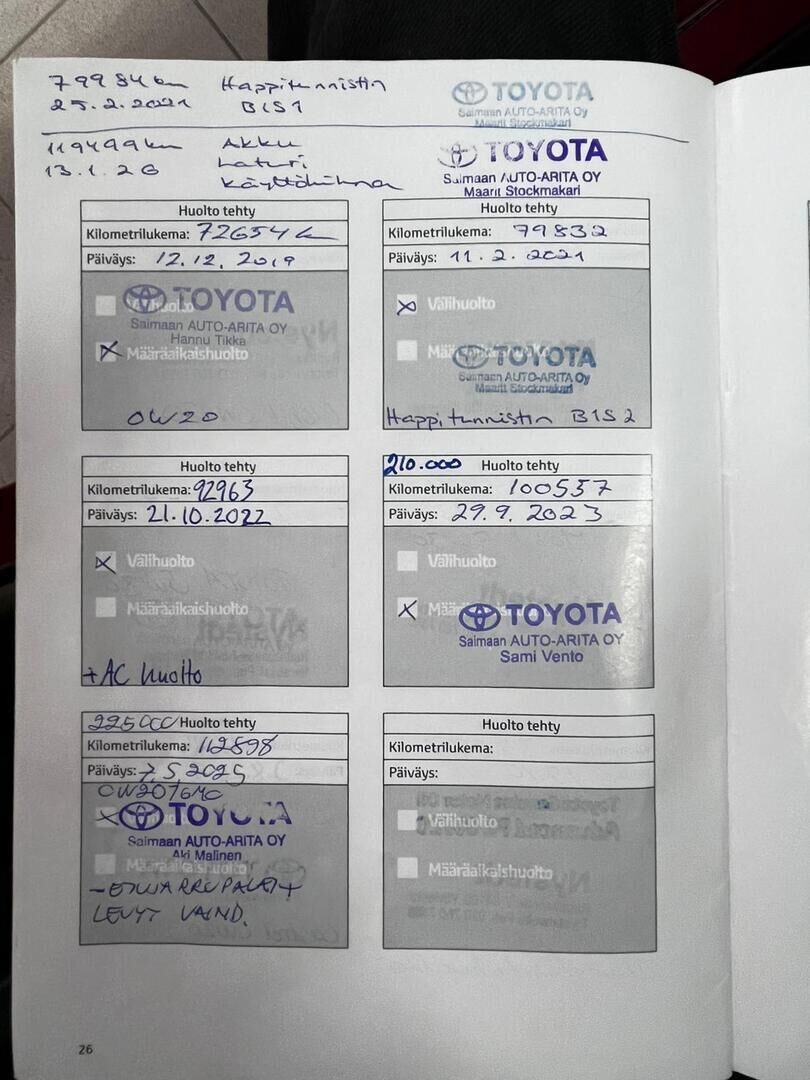 79984km Happitunnistin
25.2.2021 B1S1
TOYOTA
Saimaan AUTO-ARITA Oy
Maarit Stockmakari
119499km Akku
13.1.26 Laturi
Käyttöhihna
TOYOTA
Saimaan AUTO-ARITA OY
Maarit Stockmakari
Huolto tehty
Kilometrilukema: 72654km
Päiväys: 12.12.2019
Välihuolto
TOYOTA
Saimaan AUTO-ARITA OY
Hannu Tikka
X Määräaikaishuolto
0W20
Huolto tehty
Kilometrilukema: 79832
Päiväys: 11.2.2021
X Välihuolto
Määräaikaishuolto
TOYOTA
Saimaan AUTO-ARITA Oy
Maarit Stockmakari
Happitunnistin B1S2
Huolto tehty
Kilometrilukema: 92963
Päiväys: 21.10.2022
X Välihuolto
Määräaikaishuolto
+AC huolto
210.000 Huolto tehty
Kilometrilukema: 100557
Päiväys: 29.9.2023
Välihuolto
X Määräaikaishuolto
TOYOTA
Saimaan AUTO-ARITA OY
Sami Vento
225000 Huolto tehty
Kilometrilukema: 112898
Päiväys: 7.5.2025
X
TOYOTA
Saimaan AUTO-ARITA OY
Aki Malinen
Määräaikaishuolto
LEVYT VAIHD.
Huolto tehty
Kilometrilukema:
Päiväys:
Välihuolto
Määräaikaishuolto
26